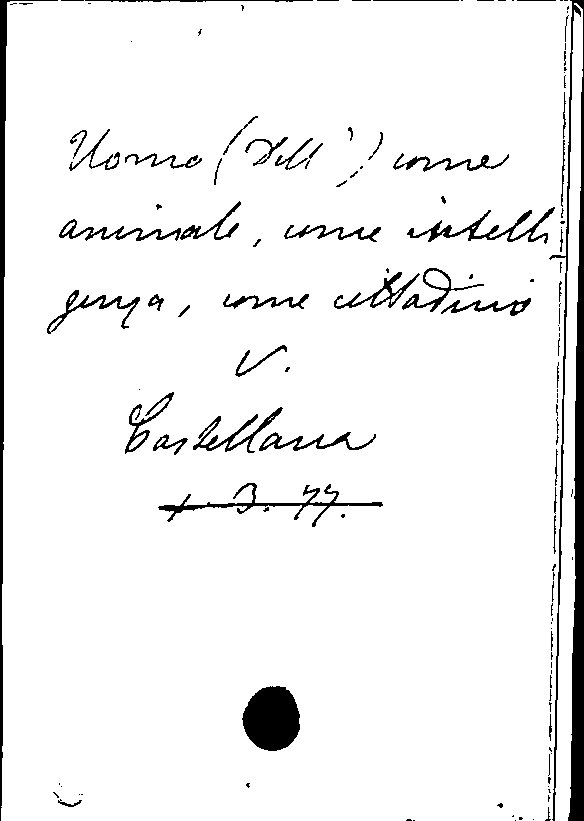 Uomo (Dell') come
animale, come intelli-
genza, come cittadino
V.
Castellana
+. 3. 77.